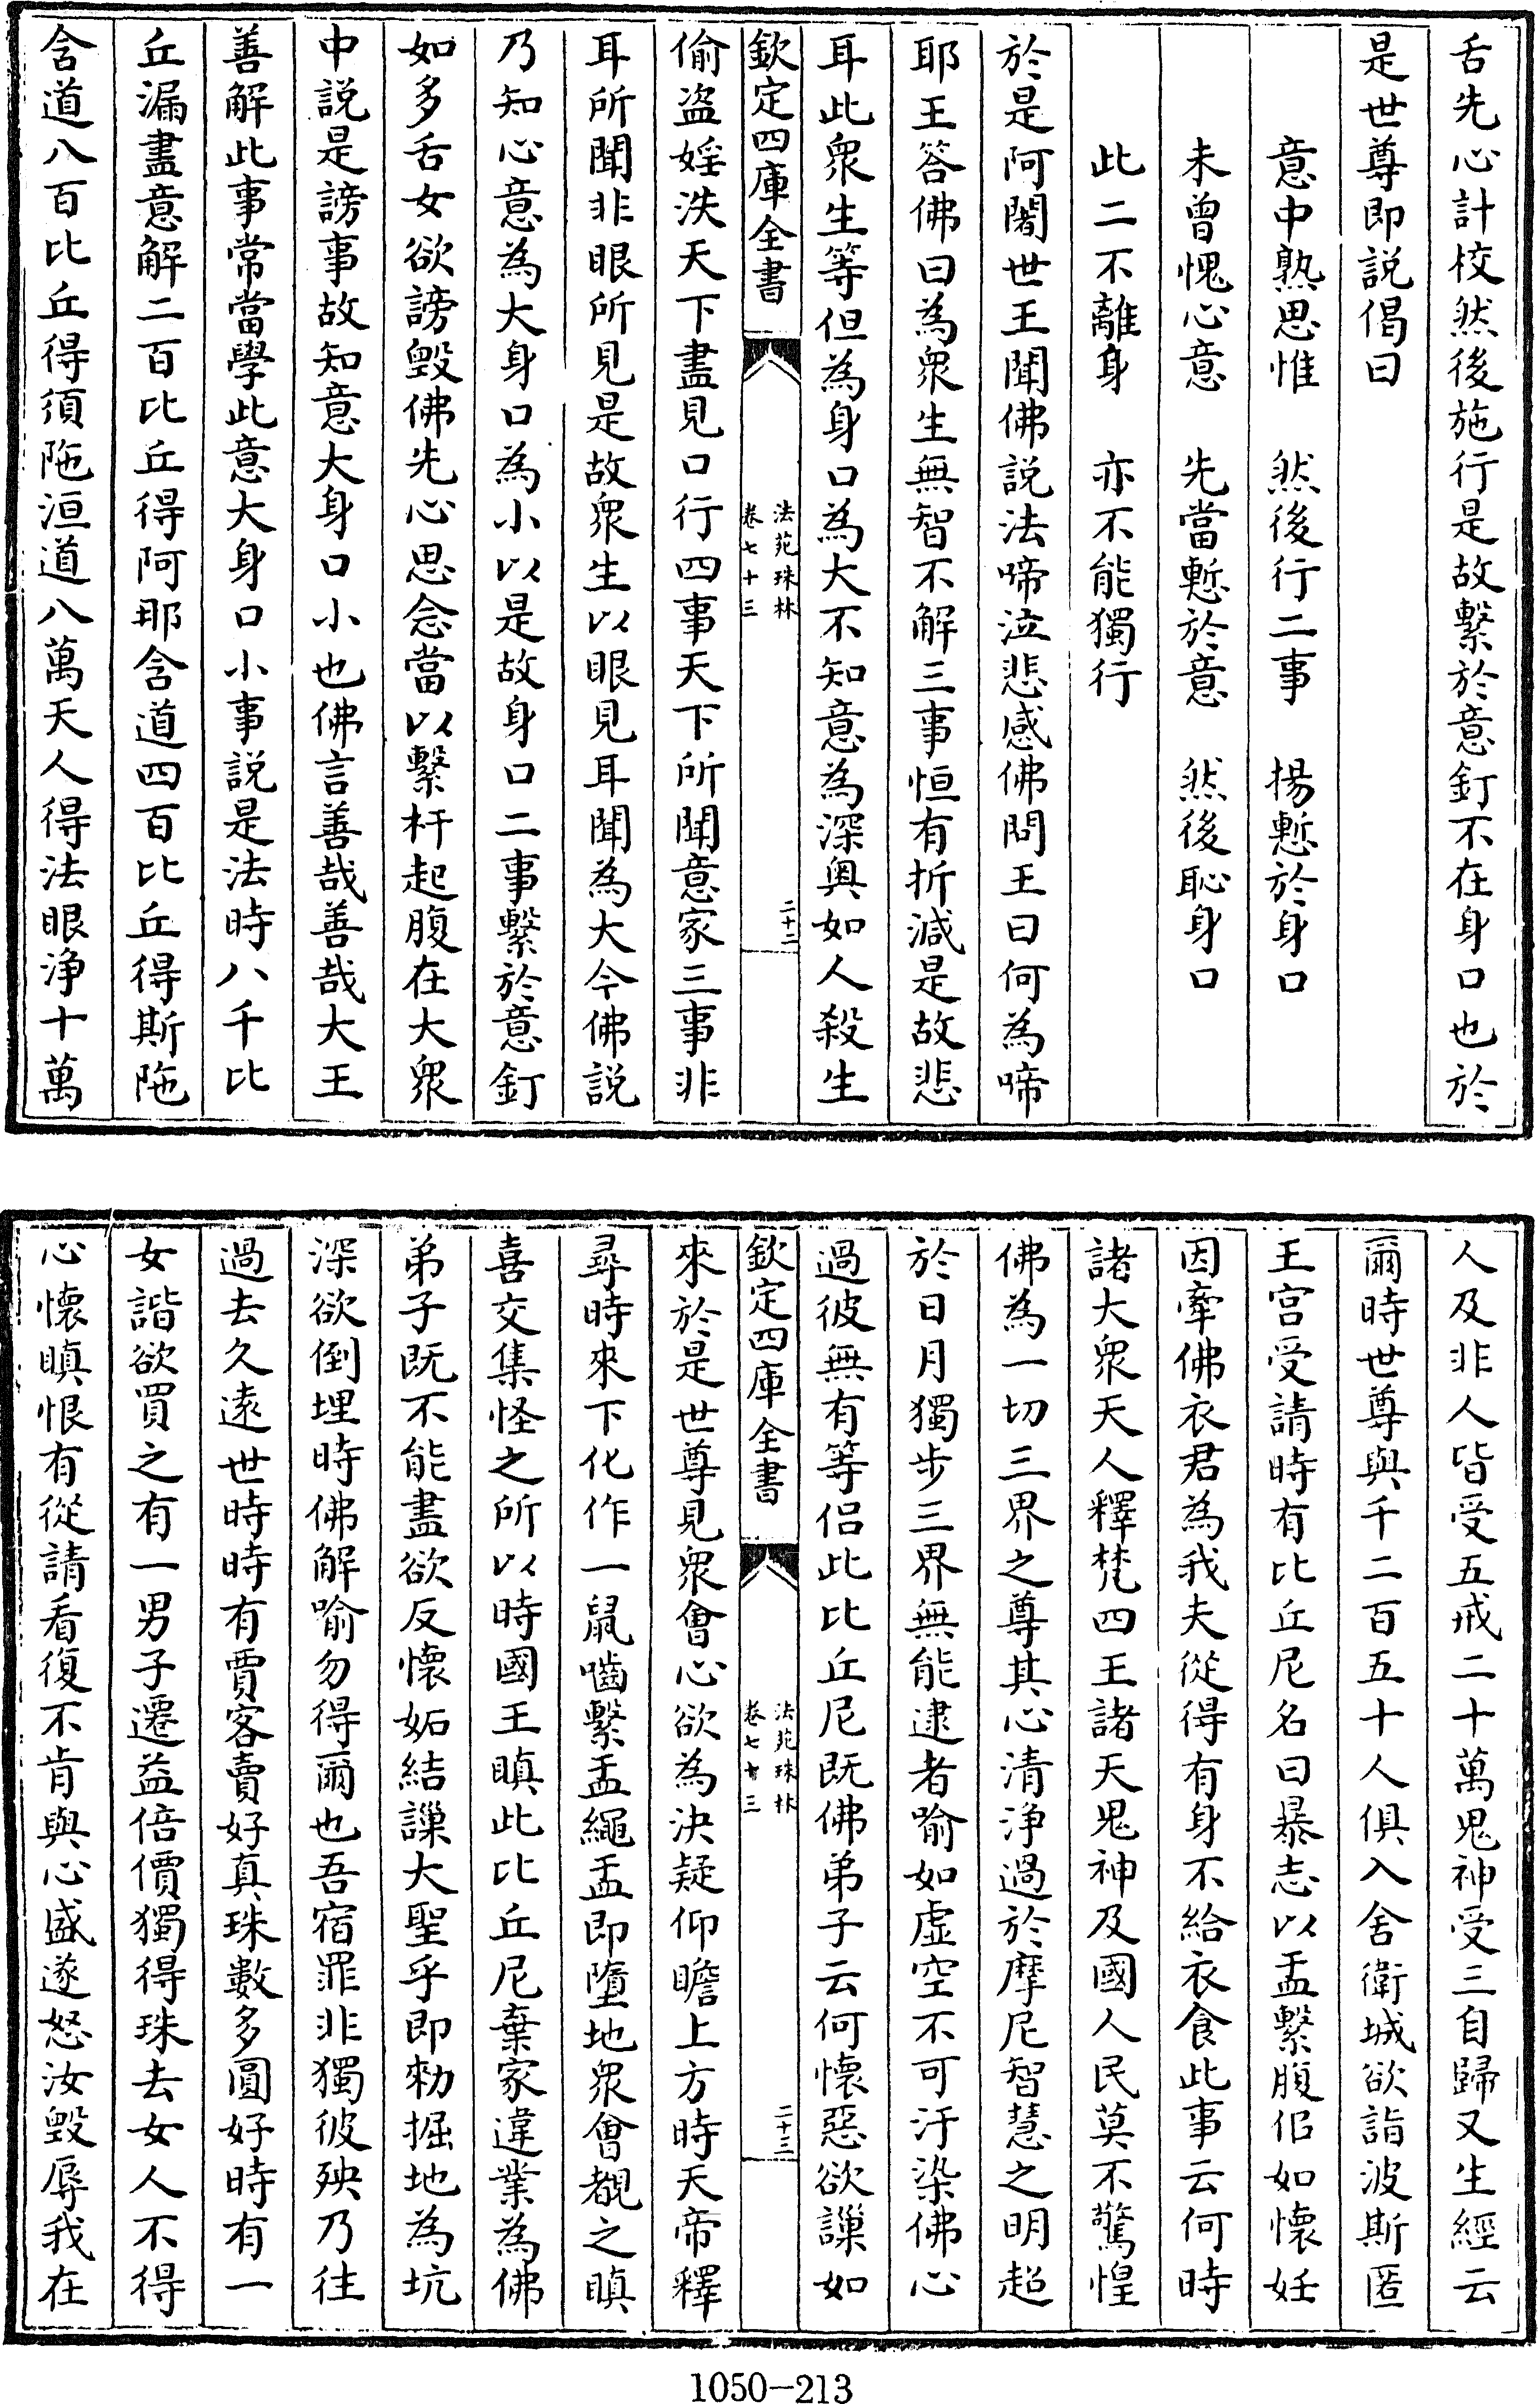 舌先心計校然後施行是故繫於意釘不在身口也於
是世尊即説偈曰
意中熟思惟　然後行二事　揚慙於身口
未曾愧心意　先當慙於意　然後恥身口
此二不離身　亦不能獨行
於是阿闍世王聞佛説法啼泣悲感佛問王曰何為啼
耶王答佛曰為衆生無智不解三事恒有折減是故悲
耳此衆生等但為身口為大不知意為深奥如人殺生
欽定四庫全書
法苑珠林
卷七十三
二十二
偷盜婬泆天下盡見口行四事天下所聞意家三事非
耳所聞非眼所見是故衆生以眼見耳聞為大今佛説
乃知心意為大身口為小以是故身口二事繫於意釘
如多舌女欲謗毀佛先心思念當以繫杅起腹在大衆
中説是謗事故知意大身口小也佛言善哉善哉大王
善解此事常當學此意大身口小事説是法時八千比
丘漏盡意解二百比丘得阿那含道四百比丘得斯陁
含道八百比丘得須陁洹道八萬天人得法眼浄十萬
人及非人皆受五戒二十萬鬼神受三自歸又生經云
爾時世尊與千二百五十人俱入舍衛城欲詣波斯匿
王宫受請時有比丘尼名曰暴志以盂繫腹佀如懷妊
因牽佛衣君為我夫從得有身不給衣食此事云何時
諸大衆天人釋梵四王諸天鬼神及國人民莫不驚惶
佛為一切三界之尊其心清浄過於摩尼智慧之明超
於日月獨步三界無能逮者喻如虚空不可汙染佛心
過彼無有等侣此比丘尼既佛弟子云何懷惡欲譟如
欽定四庫全書
法苑珠林
卷七十三
二十三
來於是世尊見衆會心欲為決疑仰瞻上方時天帝釋
尋時來下化作一鼠嚙繫盂繩盂即墮地衆會覩之瞋
喜交集怪之所以時國王瞋此比丘尼棄家違業為佛
弟子既不能盡欲反懷妬結譟大聖乎即勑掘地為坑
深欲倒埋時佛解喻勿得爾也吾宿罪非獨彼殃乃往
過去久遠世時時有賈客賣好真珠數多圓好時有一
女詣欲買之有一男子遷益倍價獨得珠去女人不得
心懷瞋恨有從請看復不肯與心盛遂怒汝毀辱我在
1050-213